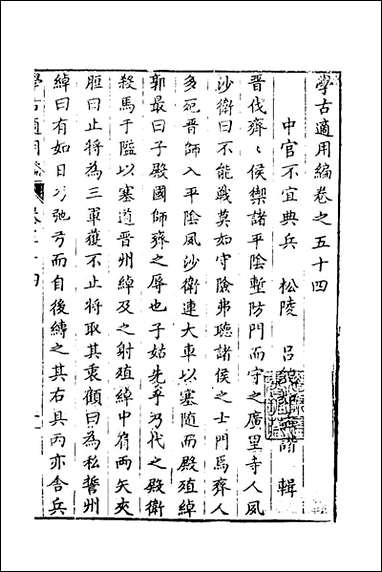 學古適用編卷之五十四
中官不宜典兵 松陵 呂 輯
晋伐齊〻侯禦諸平陰塹防門而守之廣里寺人夙
沙衛曰不能戰莫如守險弗聽諸侯之士門焉齊人
多死晋師入平陰夙沙衛連大車以塞隧而殿殖綽
郭最曰子殿國師齊之辱也子姑先乎乃代之殿衛
殺馬于隘以塞道晋州綽及之射殖綽中肩兩矢夾
脰曰止將為三軍獲不止將取其衷顧曰為私誓州
綽曰有如日乃弛弓而自後縛之其右具丙亦舍兵